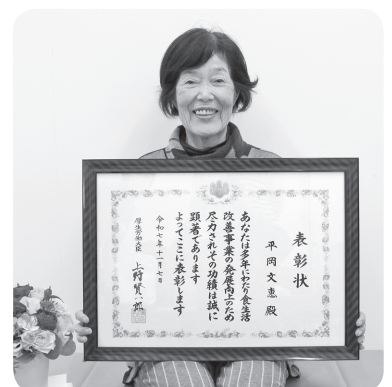 表彰状
平岡文惠 殿
あなたは多年にわたり食生活
改善事業の発展向上のため
尽力されその功績は誠に
顕著であります
よってここに表彰します
令和七年十一月七日
厚生労働大臣 上野賢一郎